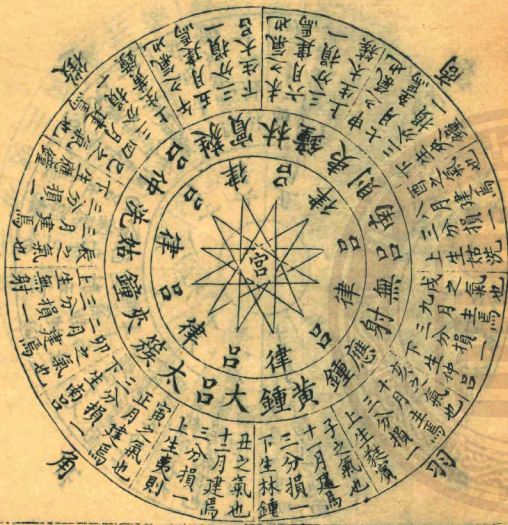 宮
商
角
徵
羽
律
呂
律
呂
律
呂
律
呂
律
呂
律
呂
黃鍾
大呂
太簇
夾鍾
姑洗
仲呂
蕤賓
林鍾
夷則
南呂
無射
應鍾
子之氣也
十一月建焉
三分損一
下生林鍾
丑之氣也
十二月建焉
三分損一
上生夷則
寅之氣也
正月建焉
三分損一
下生南呂
卯之氣也
二月建焉
三分損一
上生無射
辰之氣也
三月建焉
三分損一
下生應鍾
巳之氣也
四月建焉
三分損一
上生黃鍾
午之氣也
五月建焉
三分損一
下生大呂
未之氣也
六月建焉
三分損一
上生太簇
申之氣也
七月建焉
三分損一
酉之氣也
八月建焉
三分損一
上生姑洗
戌之氣也
九月建焉
三分損一
下生仲呂
亥之氣也
十月建焉
三分損一
上生蕤賓